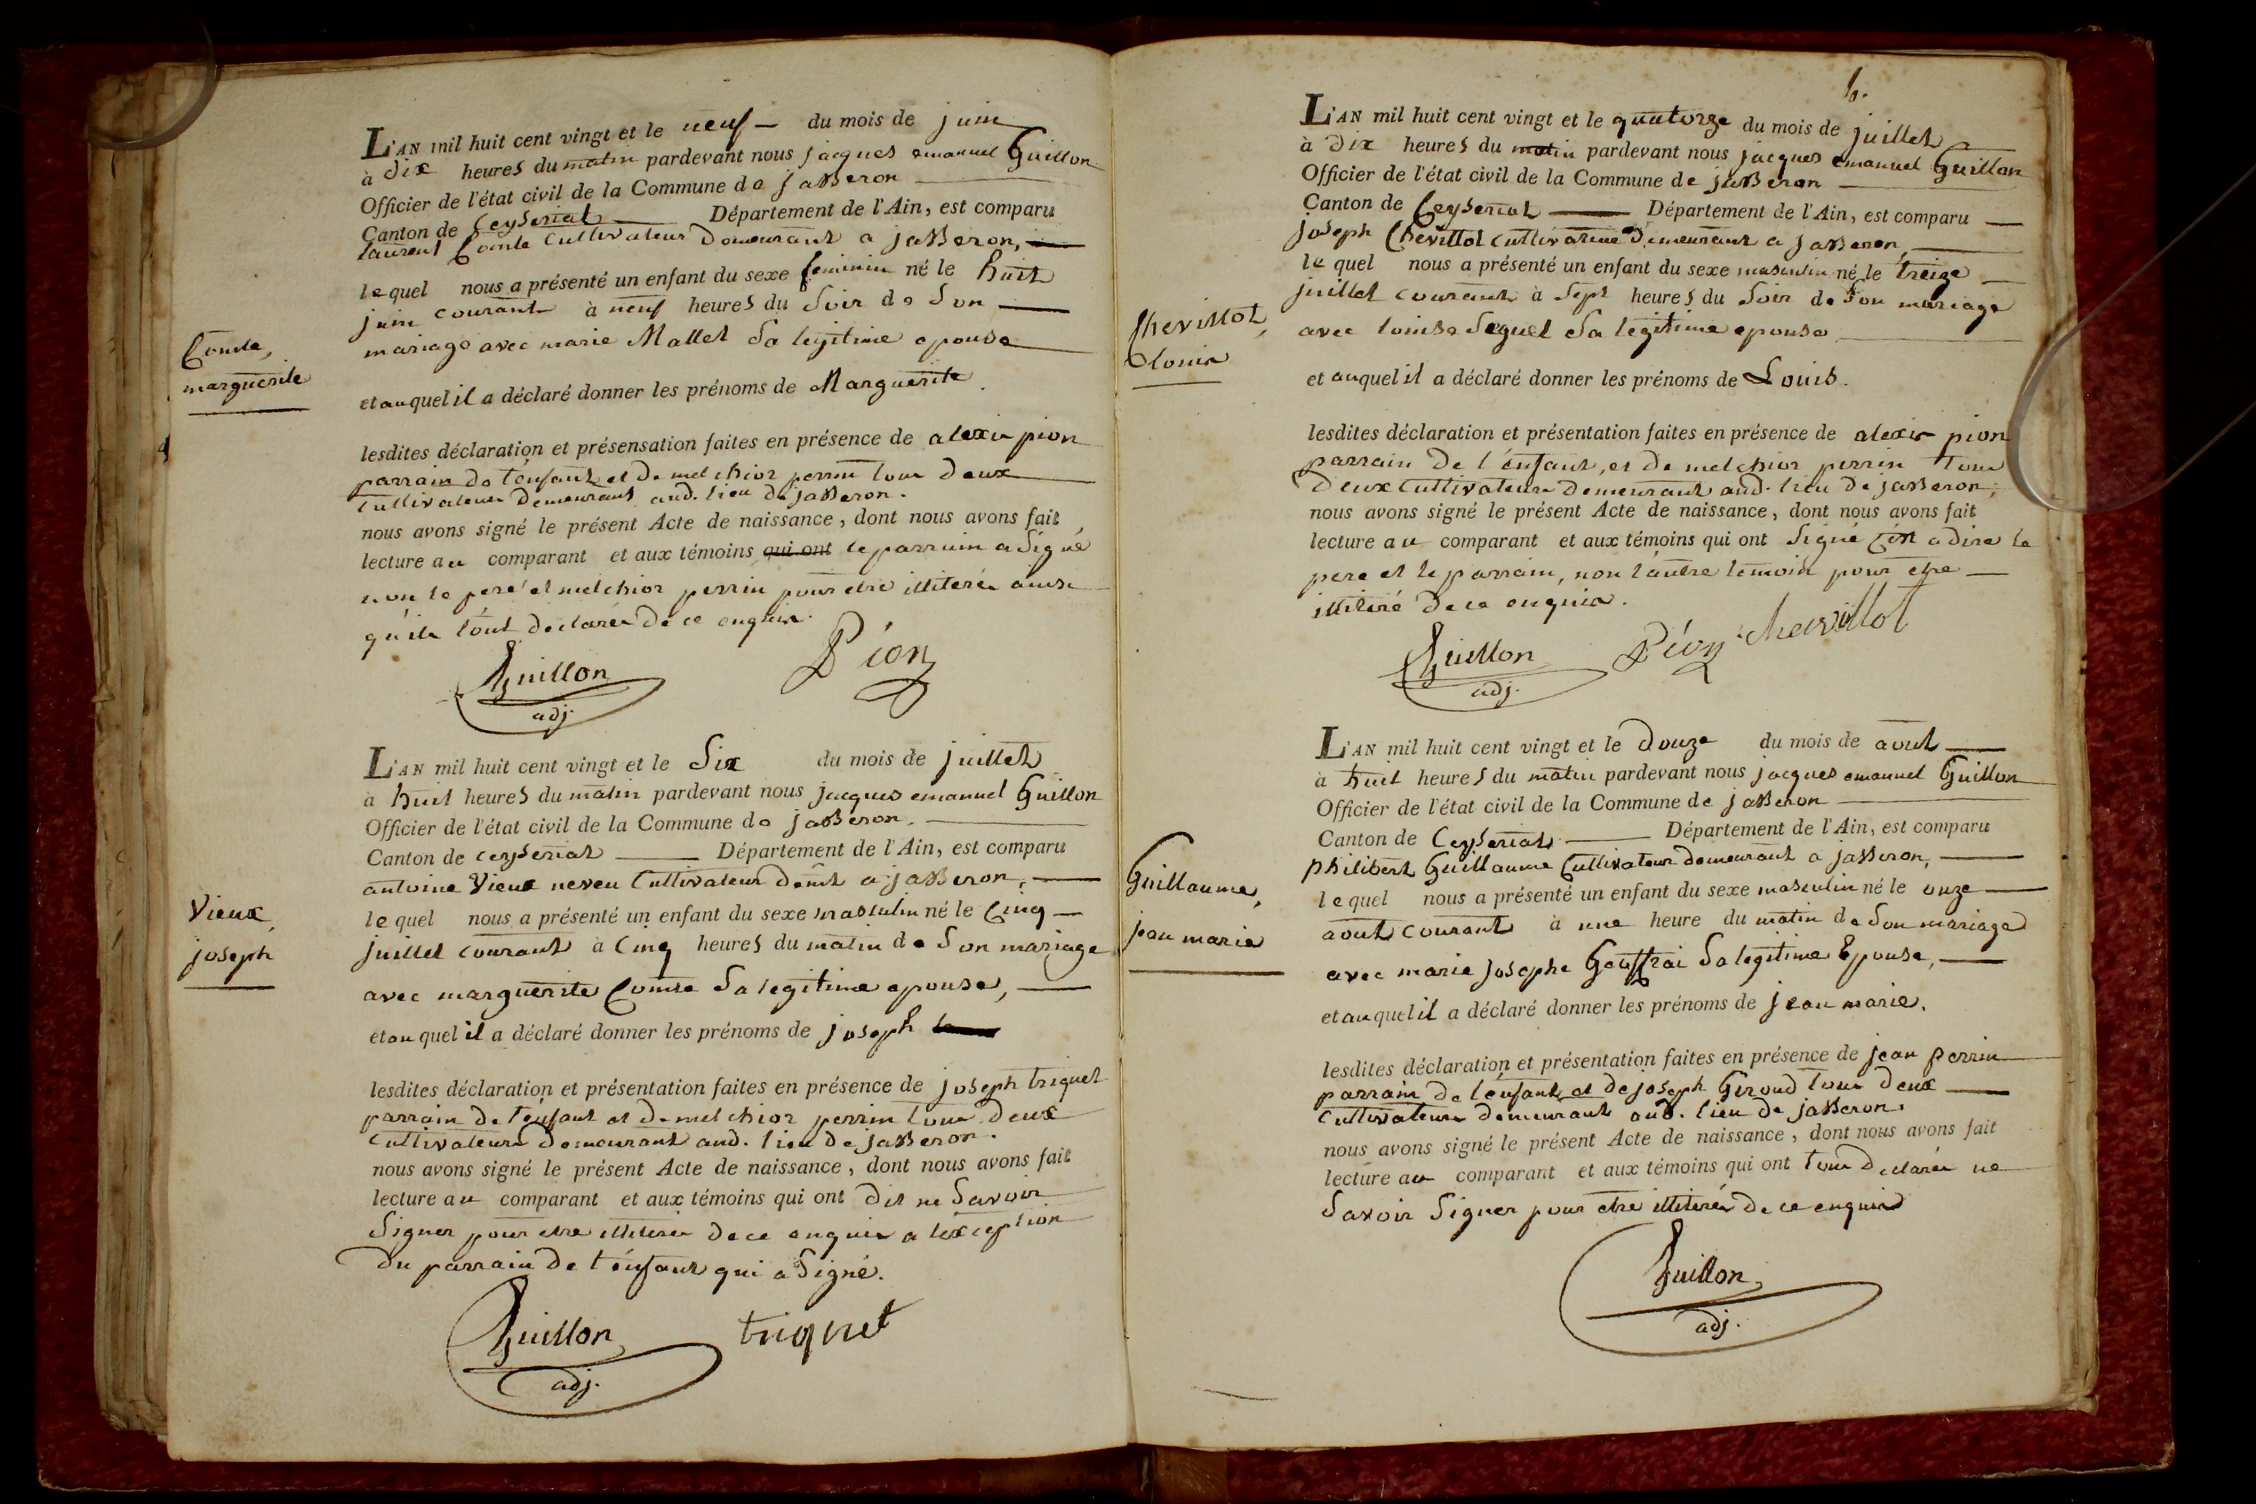 Comte,
marguerite
L'AN mil huit cent vingt et le neuf du mois de juin
à dix heures du matin pardevant nous jacques emanuel Guillon
Officier de l'état civil de la Commune de jasseron
Canton de Ceyseriat Département de l'Ain, est comparu
laurent Comte Cultivateur demeurant a jasseron,
lequel nous a présenté un enfant du sexe feminin né le huit
juin courant à neuf heures du soir de son
mariage avec marie Mallet sa legitime epouse
et auquel il a déclaré donner les prénoms de Marguerite.
lesdites déclaration et présensation faites en présence de alexis pion
parrain de l'énfant et de melchior perrin tous deux
Cultivateurs demeurant aud. lieu de jasseron.
nous avons signé le présent Acte de naissance, dont nous avons fait
lecture au comparant et aux témoins qui ont le parrain a signé
non le pere et melchior perrin pour etre illiterés ainsi
qu'ils l'ont déclarés de ce enquis.
Guillon Péon
adj.
Vieux,
joseph
L'AN mil huit cent vingt et le Six du mois de juillet
à huit heures du matin pardevant nous jacques emanuel Guillon
Officier de l'état civil de la Commune de jasseron.
Canton de ceyseriat Département de l'Ain, est comparu
antoine Vieux neveu Cultivateur demt a jasseron,
lequel nous a présenté un enfant du sexe masculin né le Cinq
juillet courant à Cinq heures du matin de son mariage
avec marguerite Comte sa legitime epouse,
et auquel il a déclaré donner les prénoms de joseph
lesdites déclaration et présentation faites en présence de joseph triquet
parrain de l'énfant et de melchior perrin tous deux
Cultivateurs demeurant aud. lieu de jasseron.
nous avons signé le présent Acte de naissance, dont nous avons fait
lecture au comparant et aux témoins qui ont dit ne savoir
signer pour etre illiterés de ce enquis a l'éxception
du parrain de l'énfant qui a signé.
Guillon triquet
adj.
6.
Chevillot,
louis
L'AN mil huit cent vingt et le quatorze du mois de juillet
à dix heures du matin pardevant nous jacques emanuel Guillon
Officier de l'état civil de la Commune de jasseron
Canton de Ceyseriat Département de l'Ain, est comparu
joseph Chevillot cultivateur demeurant a jasseron,
lequel nous a présenté un enfant du sexe masculin né le treize
juillet courant à sept heures du soir de son mariage
avec louise Seguel sa legitime epouse
et auquel il a déclaré donner les prénoms de Louis.
lesdites déclaration et présentation faites en présence de alexis pion
parrain de l'énfant, et de melchior perrin tous
deux Cultivateurs demeurant aud. lieu de jasseron,
nous avons signé le présent Acte de naissance, dont nous avons fait
lecture au comparant et aux témoins qui ont signé c'ést a dire le
pere et le parrain, non l'autre témoin pour etre
illiteré de ce enquis.
Guillon Péon chevillot
adj.
Guillaume,
jean marie
L'AN mil huit cent vingt et le douze du mois de aout
à huit heures du matin pardevant nous jacques emanuel Guillon
Officier de l'état civil de la Commune de jasseron
Canton de Ceyseriat Département de l'Ain, est comparu
philibert Guillaume Cultivateur demeurant a jasseron,
lequel nous a présenté un enfant du sexe masculin né le onze
aout courant à une heure du matin de son mariage
avec marie josephe Geoffrai sa legitime Epouse,
et auquel il a déclaré donner les prénoms de jean marie.
lesdites déclaration et présentation faites en présence de jean perrin
parrain de l'énfant, et de joseph Giroud tous deux
Cultivateurs demeurant aud. lieu de jasseron.
nous avons signé le présent Acte de naissance, dont nous avons fait
lecture au comparant et aux témoins qui ont tous declarés ne
savoir signer pour etre illiterés de ce enquis
Guillon
adj.